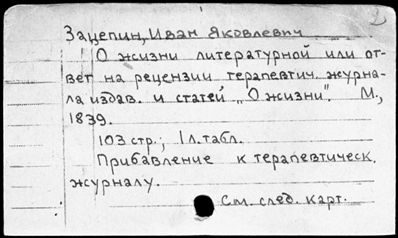 Зацепин, Иван Яковлевич
О жизни литературной или от-
вет на рецензии терапевтич. журна-
ла издав. и статей „О жизни". М.,
1839.
103 стр.; 1 л. табл.
Прибавление к терапевтическ.
журналу.
См. след. карт.